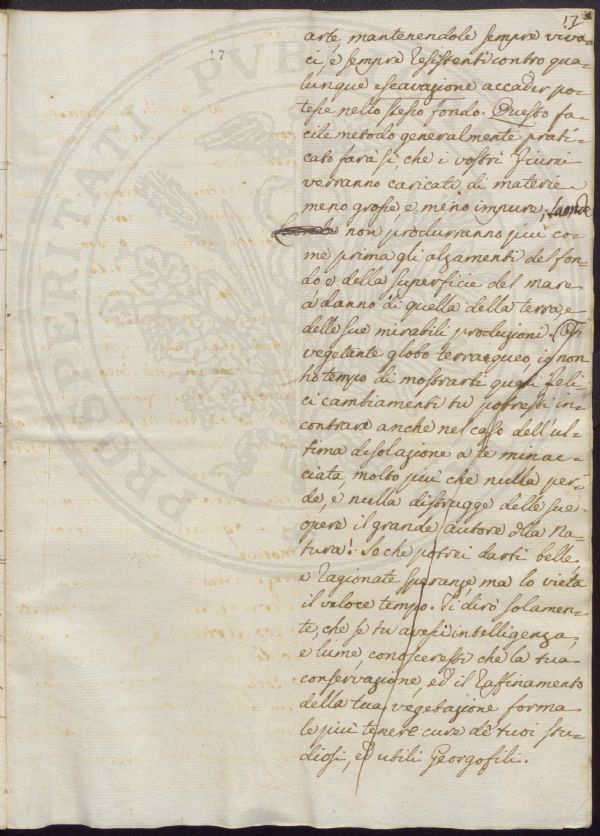 17
17
PROSPERITATI PUBLICAE
arte, mantenendole sempre viva-
ci, e sempre resistenti contro qua-
lunque escavazione accader po-
tesse nello stesso fondo. Questo fa-
cile metodo generalmente prati-
cato farà sì, che i vostri Fiumi
verranno caricati di materie
meno grosse, e meno impure, laonde
non produrranno più co-
me prima gli alzamenti del fon-
do e della superficie del mare
a danno di quella della terra, e
delle sue mirabili produzioni. Oh
vegetante globo terraqueo, io non
ho tempo di mostrarti quali feli-
ci cambiamenti tu potresti in-
contrare anche nel caso dell'ul-
tima desolazione a te minac-
ciata, molto più che nulla per-
de, e nulla distrugge delle sue
opere il grande autore della Na-
tura! So che potrei darti belle
e ragionate speranze, ma lo vieta
il veloce tempo. Ti dirò solamen-
te, che se tu avessi intelligenza,
e lume, conosceresti che la tua
conservazione, ed il raffinamento
della tua vegetazione forma
le più tenere cure de' tuoi stu-
diosi, ed utili Georgofili.